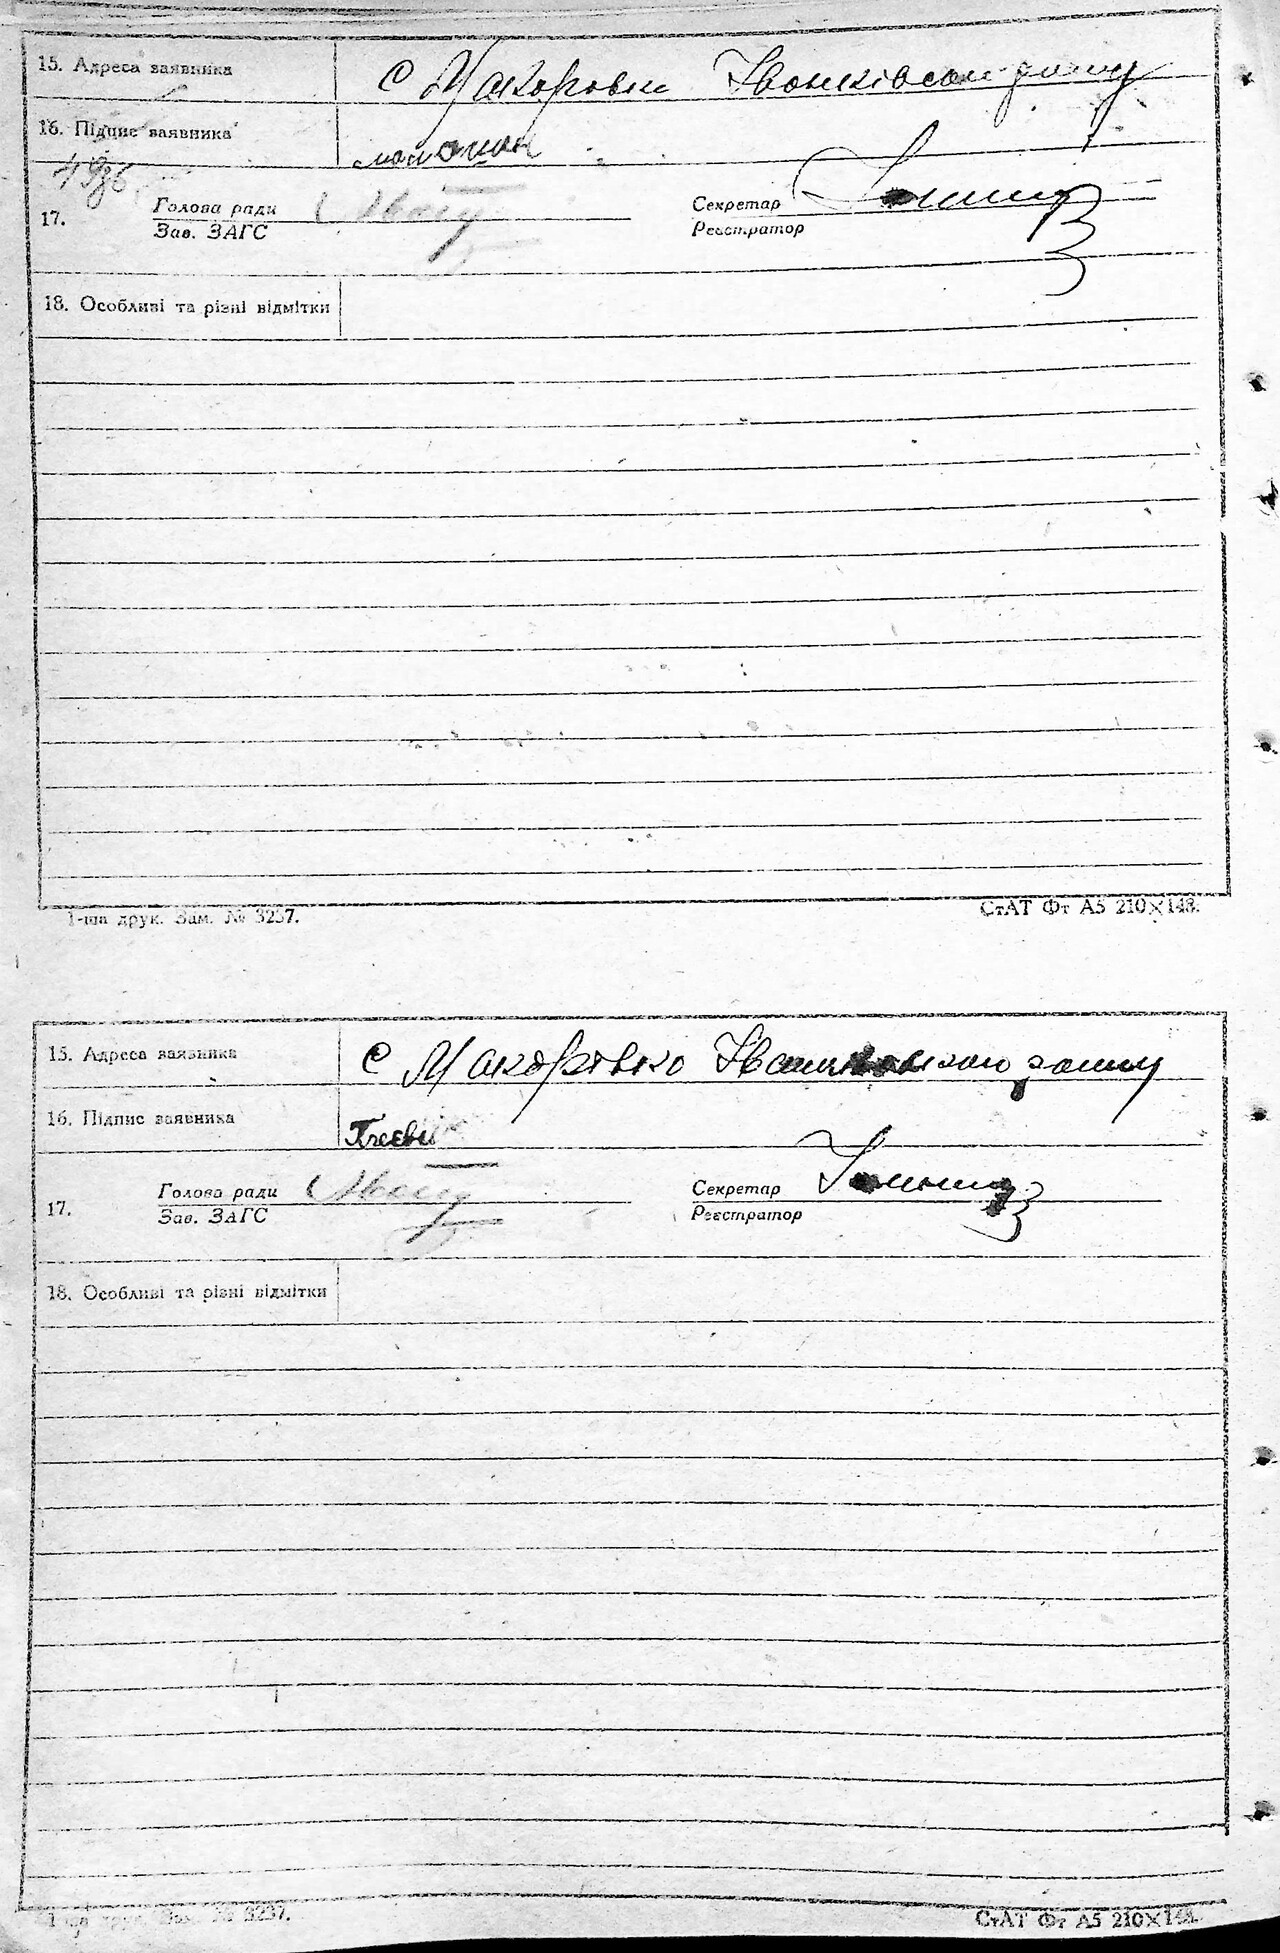 15. Адреса заявника С Макоровка Іванківского району
16. Підпис заявника
1936
17. Голова ради Секретар
Зав. ЗАГС Реєстратор
18. Особливі та різні відмітки
1-ша друк. Зам. № 3237. СтАТ Фт А5 210×148.
15. Адреса заявника С Макорівка району
16. Підпис заявника
17. Голова ради Секретар
Зав. ЗАГС Реєстратор
18. Особливі та різні відмітки
1-ша друк. Зам. № 3237. СтАТ Фт А5 210×148.